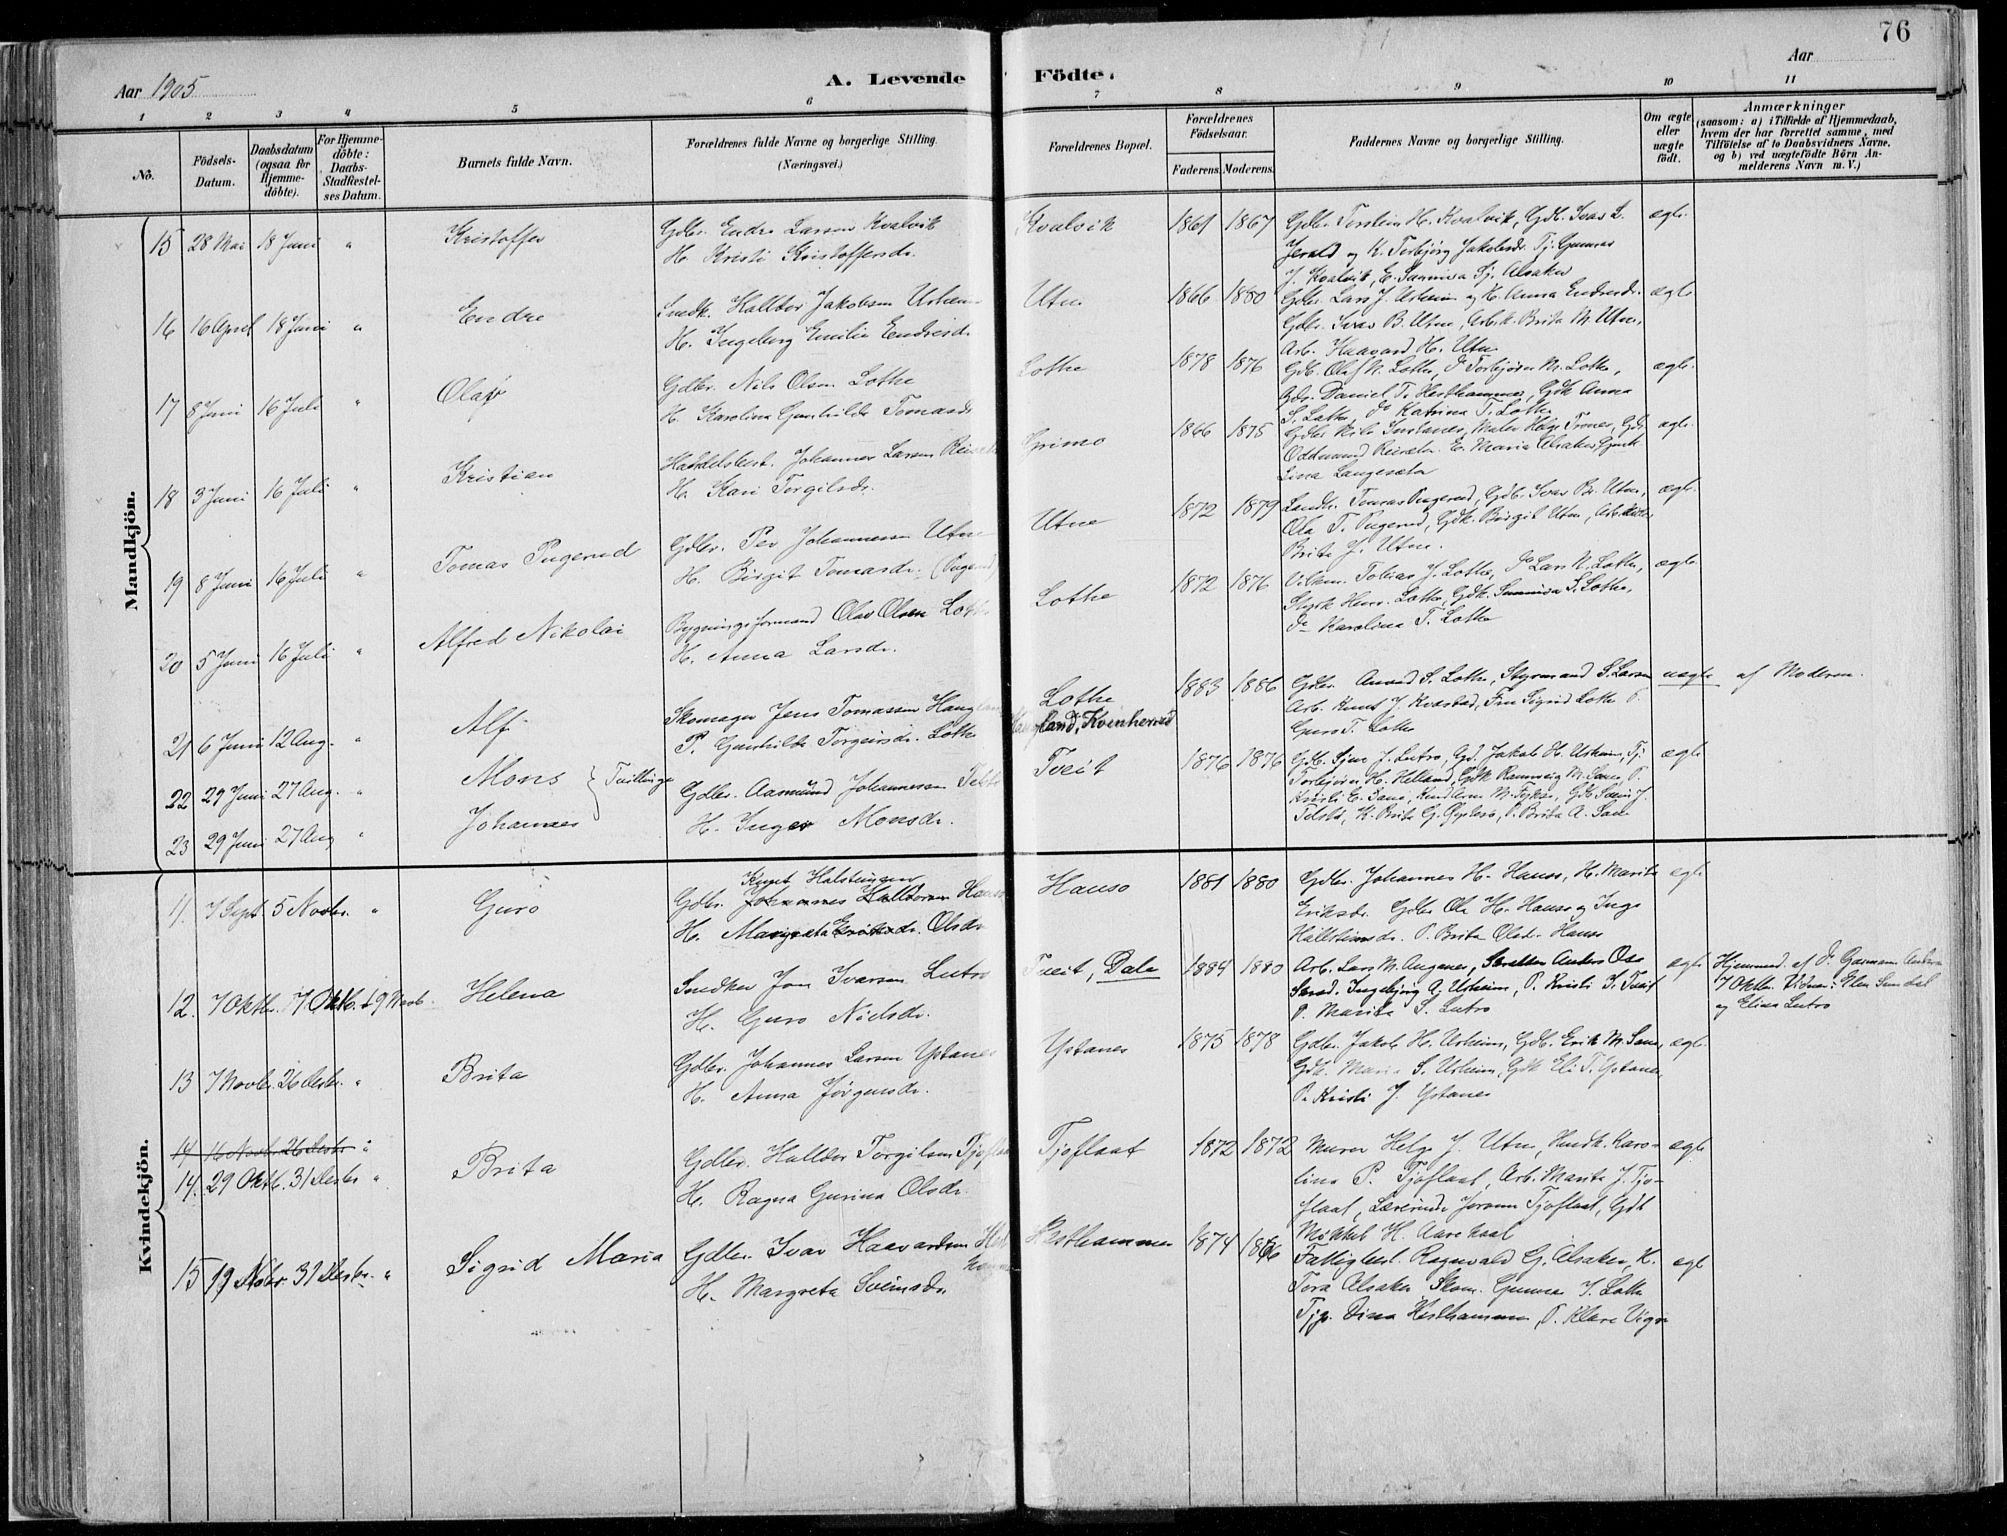 76
Aar 1905
A. Levende Födte.
Aar
1 2 3 4 5 6 7 8 9 10 11
No.
Födsels-Datum.
Daabsdatum (ogsaa for Hjemme-döbte).
For Hjemme-döbte: Daabs-Stadfæstel-ses Datum.
Barnets fulde Navn.
Forældrenes fulde Navne og borgerlige Stilling.
(Næringsvei.)
Forældrenes Bopæl.
Forældrenes Födselsaar.
Faderens. Moderens.
Faddernes Navne og borgerlige Stilling.
Om ægte eller uægte födt.
Anmærkninger
(saasom: a) i Tilfælde af Hjemmedaab,
hvem der har forrettet samme, med
Tilföielse af to Daabsvidners Navne,
og b) ved uægtefödte Börn An-
melderens Navn m. V.)
Mandkjön.
15 28 Mai 18 Juni " Kristoffer
Gdbr. Endre Larsen Kvalvik
H. Kristi Kristoffersdr.
Kvalvik 1861 1867
Gdbr. Torstein H. Kvalvik, Gdb. Ivar L.
Jerald og K. Torbjörg Jakobsdr. Tj. Gunnar
J. Kvalvik, E. Sunniva Tj. Alsaker
ægte
16 16 April 18 Juni " Endre
Snedk. Halldor Jakobsen Urheim
H. Ingeborg Emilie Endresdr.
Utne 1866 1880
Gdbr. Lars J. Urheim og H. Anna Endresdr.
Gdbr. Ivar B. Utne, Arbk. Brita M. Utne,
Arb. Haavard H. Utne
ægte
17 8 Juni 16 Juli " Olav
Gdbr. Nils Olsen Lothe
H. Karolina Gunhilda Tomasdr
Lothe 1878 1876
Gdb. Olaf N. Lothe, do Torbjörn M. Lothe,
Gdr. Daniel T. Hesthammer, Gdk Anna
S. Lothe, do Katrina T. Lothe
ægte.
18 3 Juni 16 Juli " Kristian
Handelsbest. Johannes Larsen Reisæter
H. Kari Torgilsdr.
Grimo 1866 1875
Oddmund Reisæter. E. Maria Alsaker
Lina Langesæter
ægte.
19 8 Juni 16 Juli " Tomas Pugerud
Gdbr. Per Johannessen Utne
H. Birgit Tomasdr. (Pugerud)
Utne 1872 1879
Landh. Tomas Pugerud, Gdb. Ivar Br. Utne,
Ola T. Pugerud, Gdk. Birgit Utne,
Brita J. Utne.
ægte.
20 5 Juni 16 Juli " Alfred Nikolai
Bygningsformand Olav Olsen Lothe
H. Anna Larsdr.
Lothe 1872 1876
Tobias J. Lothe, do Lars N. Lothe,
Styrk Henr. Lothe, Gdk. Sunniva S. Lothe,
do Karolina T. Lothe
ægte
21 6 Juni 12 Aug. " Alf
Skomager Jens Tomassen Haugland
P. Gunhilda Torgeirsdr. Lothe
Lothe
Haugland, Kvinherred
1883 1886
Gdbr. Amund S. Lothe, Styrmand S. Larsen
Arb. Knut J. Kvastad, Fru Sigrid Lothe P.
Guro T. Lothe
uægte af Moderen.
22 29 Juni 27 Aug. " Mons } Tvillinge
23 29 Juni 27 Aug " Johannes
Gdbr. Aasmund Johannessen
H. Inger Monsdr.
Tveit 1876 1876
Gdb. Sjur J. Lutro, Gd. Jakob H. Urheim, Tj.
Torbjörn H. Helland, Gdk Rannveig M. Sane, P.
Kristi E. Sane,
P. Brita A. Sane
ægte
Kvindekjön.
11. 7 Sept. 5 Novbr. " Guro
Knut Halsteinsen
Gdbr. Johannes Halldorsen Hauso
H. Margreta Eriksdr. Olsdr
Hauso 1881 1880
Gdbr. Johannes H. Hauso, H. Marita
Eriksdr. Gdbr Ola H. Hauso og Inga
Hallsteinsdr. P. Brita Olsdr. Hauso
ægte
12. 7 Oktbr. 7 Oktb. 19 Novb. Helena
Snedker Jon Ivarsen Lutro
H. Guro Nielsdr.
Tveit, Dale 1884 1880
Arb. Lars M. Augenes,
Ingebjörg A. Urheim, P. Kristi I. Tveit
P. Marita S. Lutro
ægte
Hjemmed. af
7 Oktbr. Vidner:
og Elina Lutro
13 7 Novbr. 26 Desbr. " Brita
Gdbr. Johannes Larsen Ystanes
H. Anna Jörgensdr.
Ystanes 1875 1878
Gdbr. Jakob H. Urheim, Gdb. Erik M. Sane,
Gdk. Maria S. Urheim, Gdk Eli T. Ystanes,
P. Kristi J. Ystanes
ægte
14 16 Novbr. 26 Desbr "
14. 29 Oktb. 31 Desbr " Brita
Gdbr. Halldor Torgilsen Tjoflaat
H. Ragna Gurina Olsdr.
Tjoflaat 1872 1872
Murer Helge J. Utne, Karo-
lina P. Tjoflaat, Arb. Marita J. Tjo-
flaat, Lærerinde Joraam Tjoflaat, Gdb
Mikkel H. Aarekaal
ægte
15 19 Novbr 31 Desbr. " Sigrid Maria
Gdbr. Ivar Haavardsen Hest-
hammer
H. Margreta Sveinsdr.
Hesthammer 1874 1866
Fattigbest. Ragnvald G. Alsaker, K.
Tora Alsaker Skom. Gunnar I. Lothe
Tjp. Dina Hesthammer, P. Klara Vigo
ægte